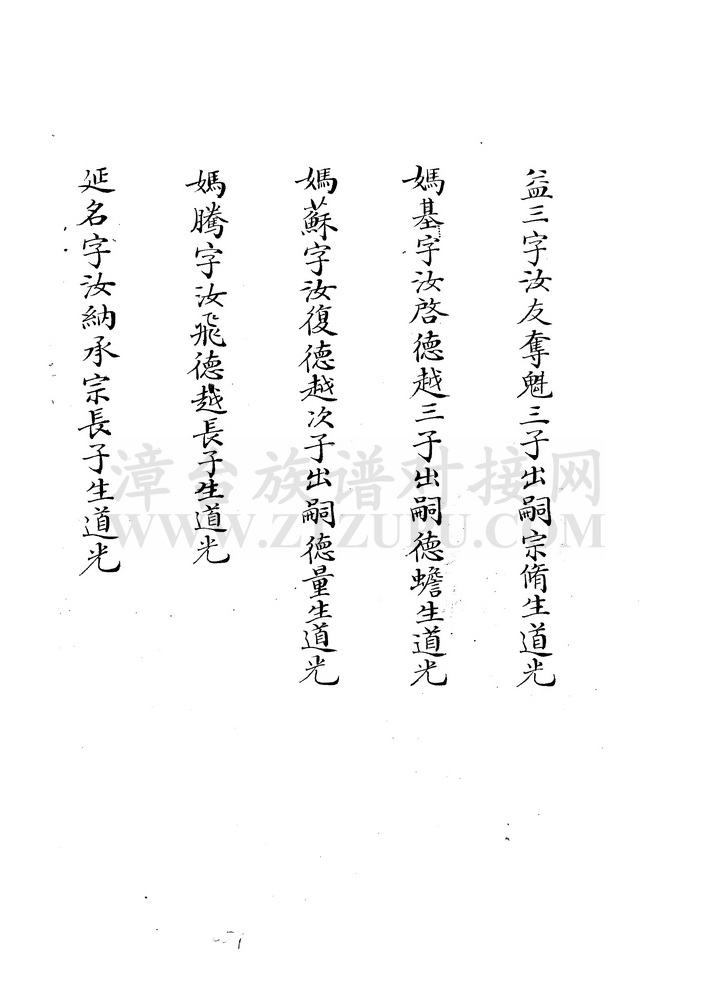 益三字汝友奪魁三子出嗣宗脩生道光
媽基字汝啓德越三子出嗣德蟾生道光
媽蘇字汝復德越次子出嗣德量生道光
媽騰字汝飛德越長子生道光
延名字汝納承宗長子生道光
漳台族谱对接网
WWW.ZTZUPU.COM